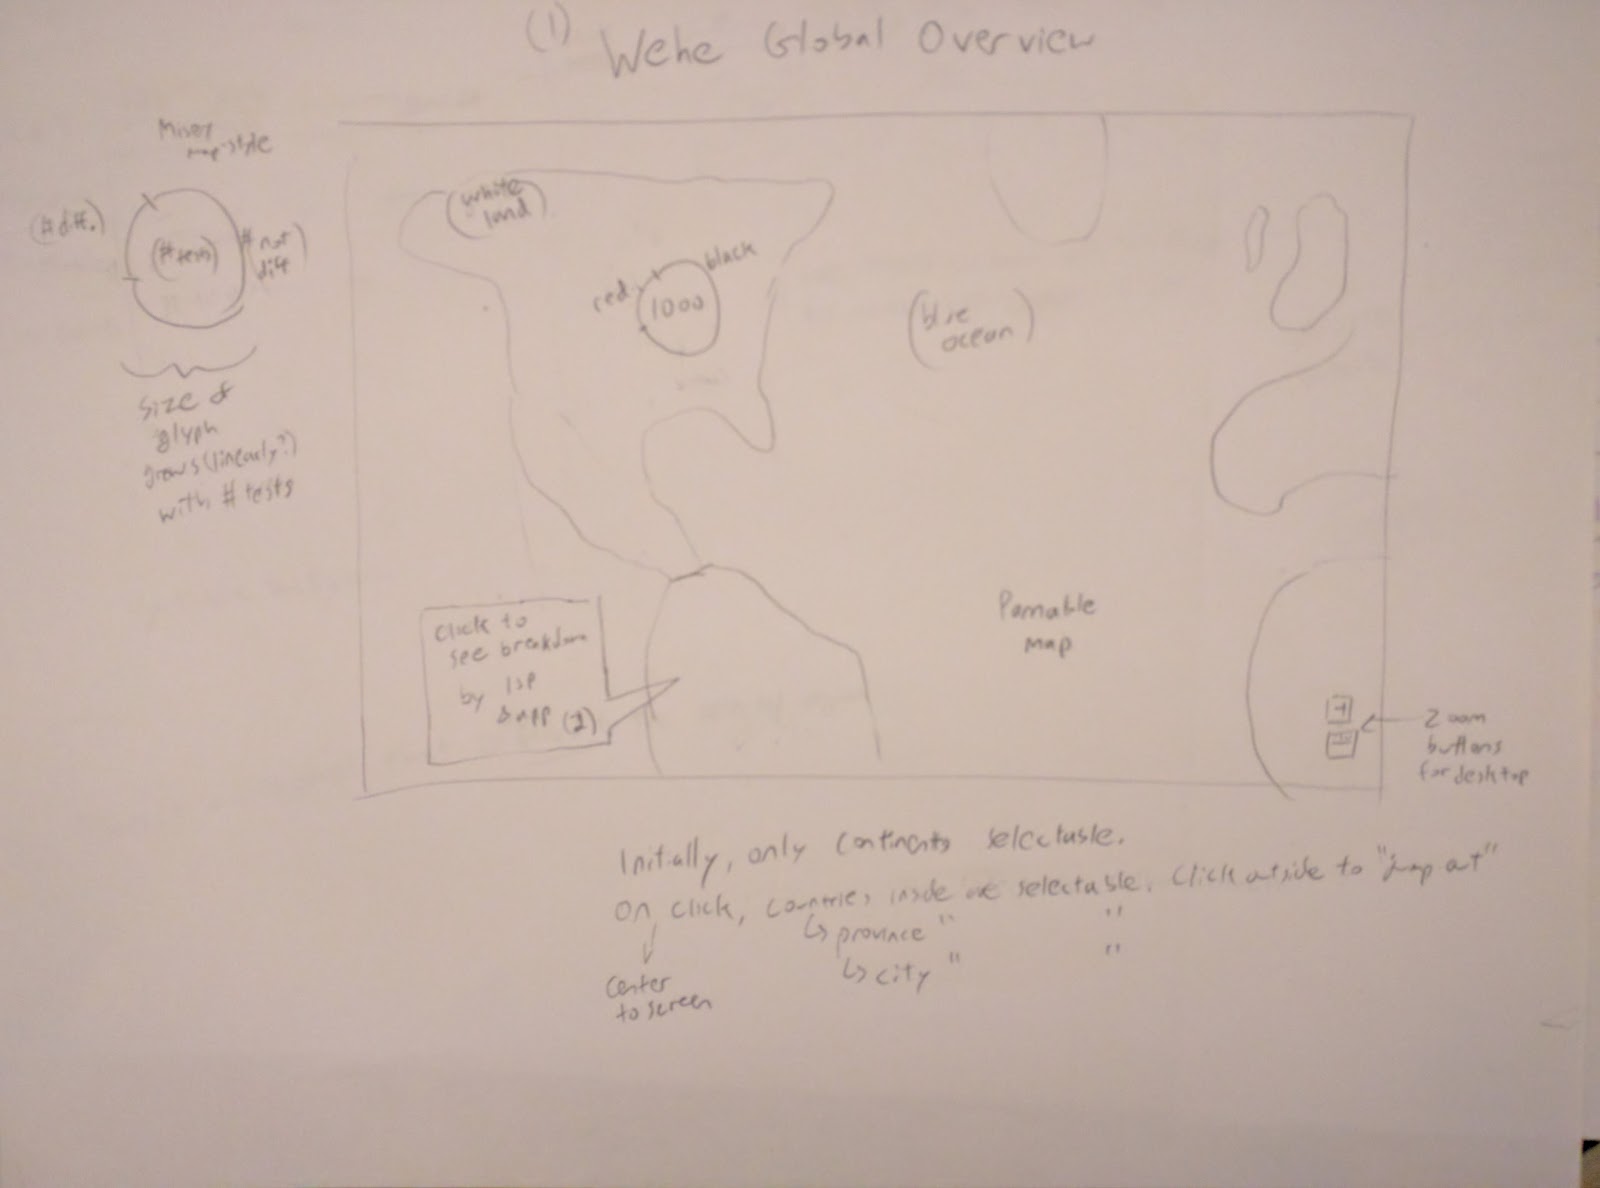 (1) Wehe Global Overview
Misery
map-style
(# diff.)
(# tests)
# not
diff)
Size of
glyph
grows (linearly?)
with # tests
(white
land)
red
black
1000
(blue
ocean)
Click to
see breakdown
by ISP
& app (2)
Pannable
map
+
Zoom
buttons
for desktop
Initially, only continents selectable.
On click, countries inside are selectable. Click outside to "jump out"
↳ province " "
↳ city " "
Center
to screen